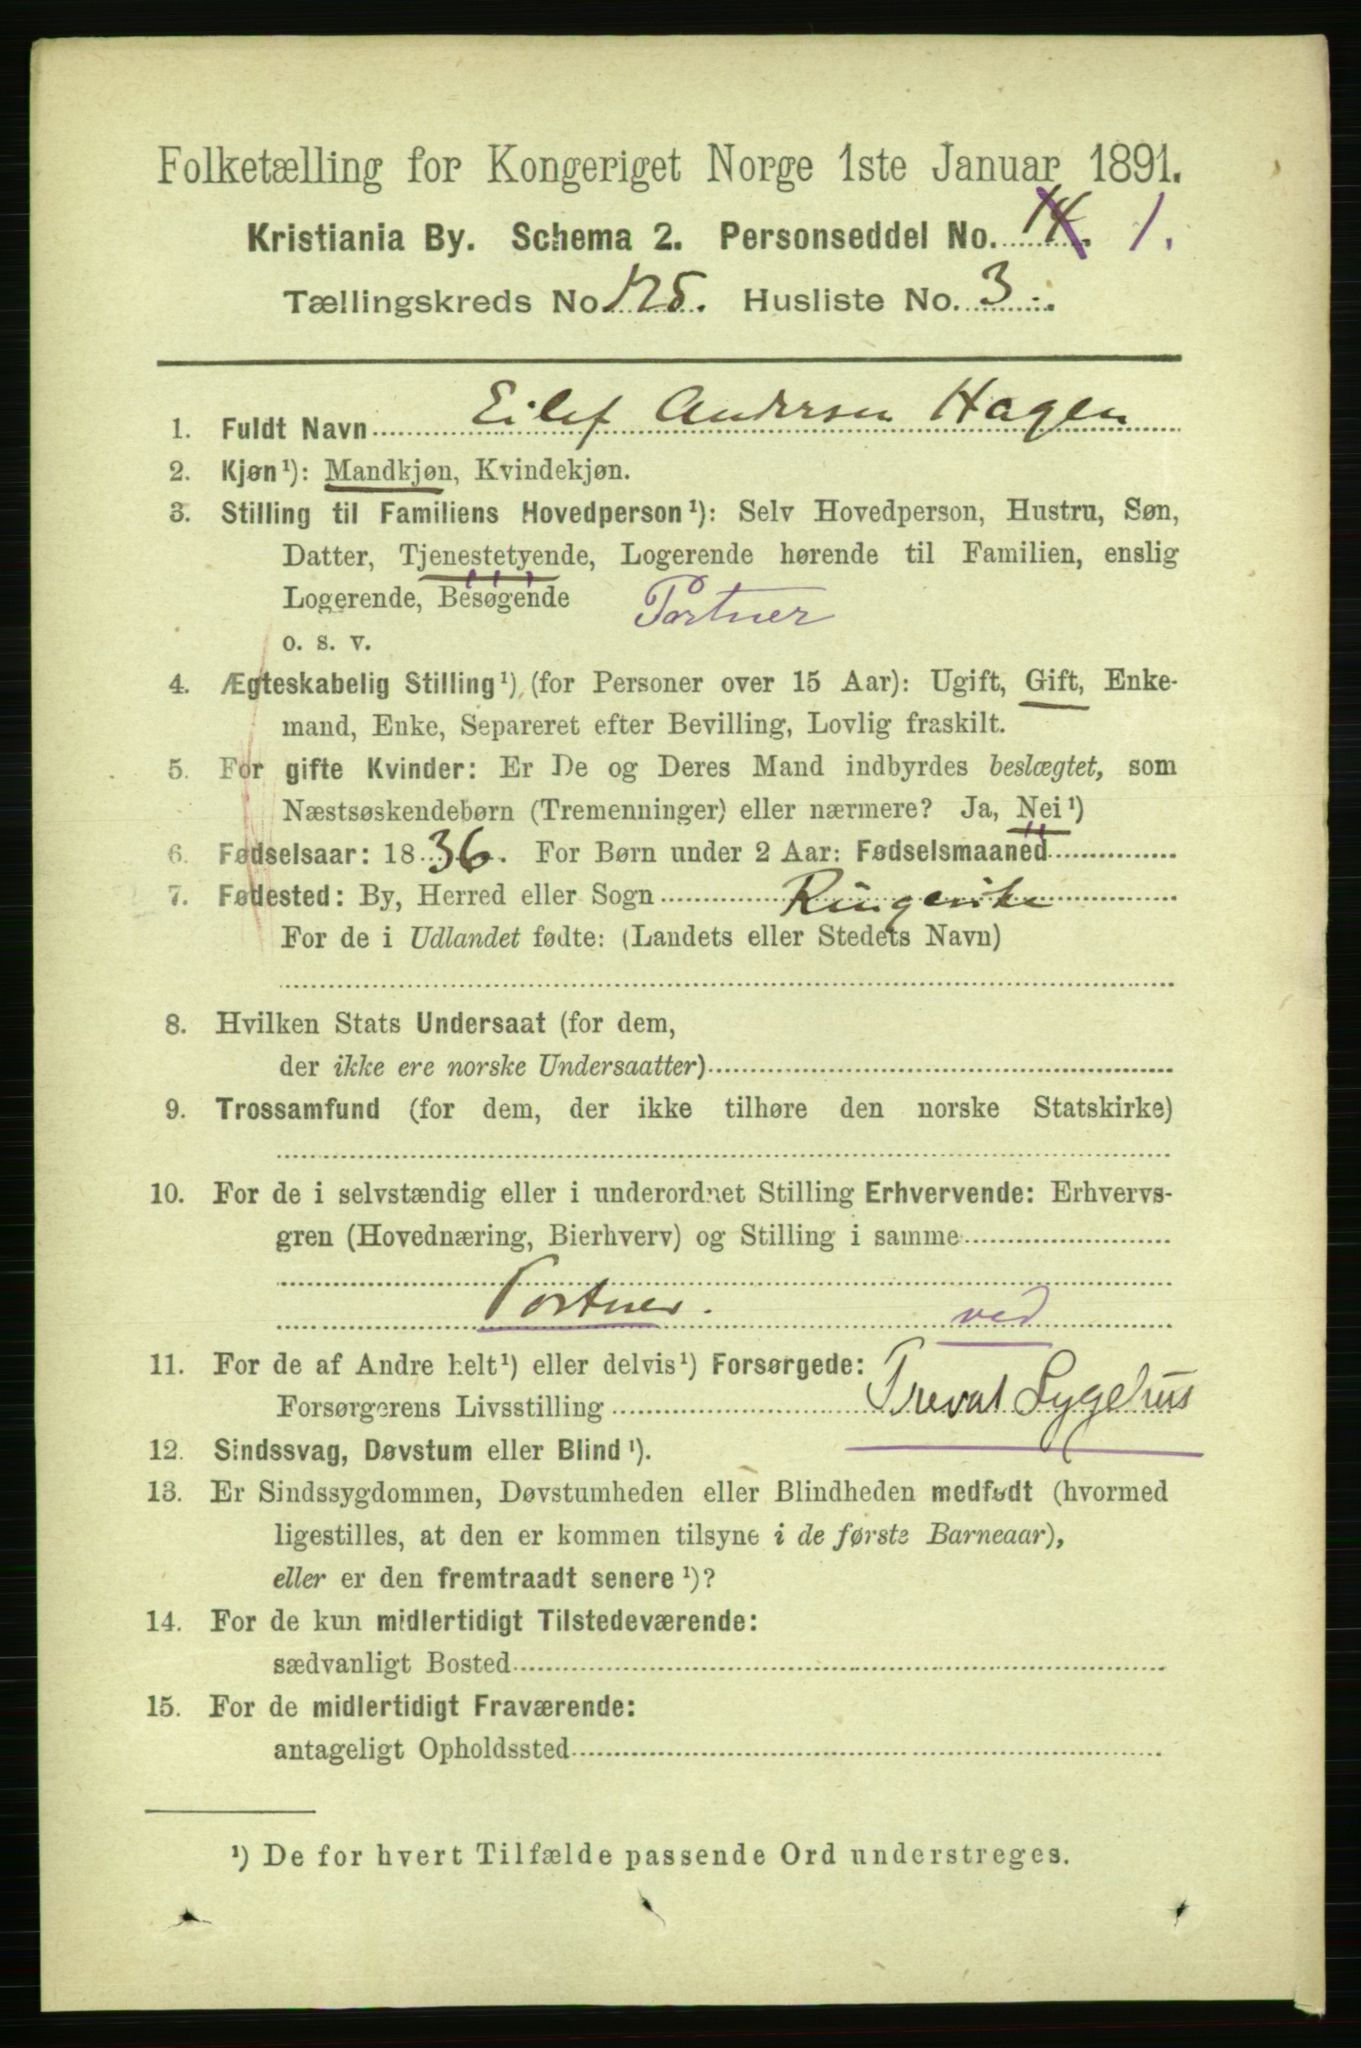 Folketælling for Kongeriget Norge 1ste Januar 1891.
Kristiania By. Schema 2. Personseddel No. 14. 1.
Tællingskreds No 125. Husliste No. 3.
1. Fuldt Navn Eilef Andersen Hagen
2. Kjøn¹): Mandkjøn, Kvindekjøn.
3. Stilling til Familiens Hovedperson¹): Selv Hovedperson, Hustru, Søn,
Datter, Tjenestetyende, Logerende hørende til Familien, enslig
Logerende, Besøgende Portner
o. s. v.
4. Ægteskabelig Stilling¹) (for Personer over 15 Aar): Ugift, Gift, Enke-
mand, Enke, Separeret efter Bevilling, Lovlig fraskilt.
5. For gifte Kvinder: Er De og Deres Mand indbyrdes beslægtet, som
Næstsøskendebørn (Tremenninger) eller nærmere? Ja, Nei¹)
6. Fødselsaar: 1836. For Børn under 2 Aar: Fødselsmaaned
7. Fødested: By, Herred eller Sogn Ringerike
For de i Udlandet fødte: (Landets eller Stedets Navn)
8. Hvilken Stats Undersaat (for dem,
der ikke ere norske Undersaatter)
9. Trossamfund (for dem, der ikke tilhøre den norske Statskirke)
10. For de i selvstændig eller i underordnet Stilling Erhvervende: Erhvervs-
gren (Hovednæring, Bierhverv) og Stilling i samme
Portner. ved
11. For de af Andre helt¹) eller delvis¹) Forsørgede:
Forsørgerens Livsstilling Privat Sygehus
12. Sindssvag, Døvstum eller Blind¹).
13. Er Sindssygdommen, Døvstumheden eller Blindheden medfødt (hvormed
ligestilles, at den er kommen tilsyne i de første Barneaar),
eller er den fremtraadt senere¹)?
14. For de kun midlertidigt Tilstedeværende:
sædvanligt Bosted
15. For de midlertidigt Fraværende:
antageligt Opholdssted
¹) De for hvert Tilfælde passende Ord understreges.